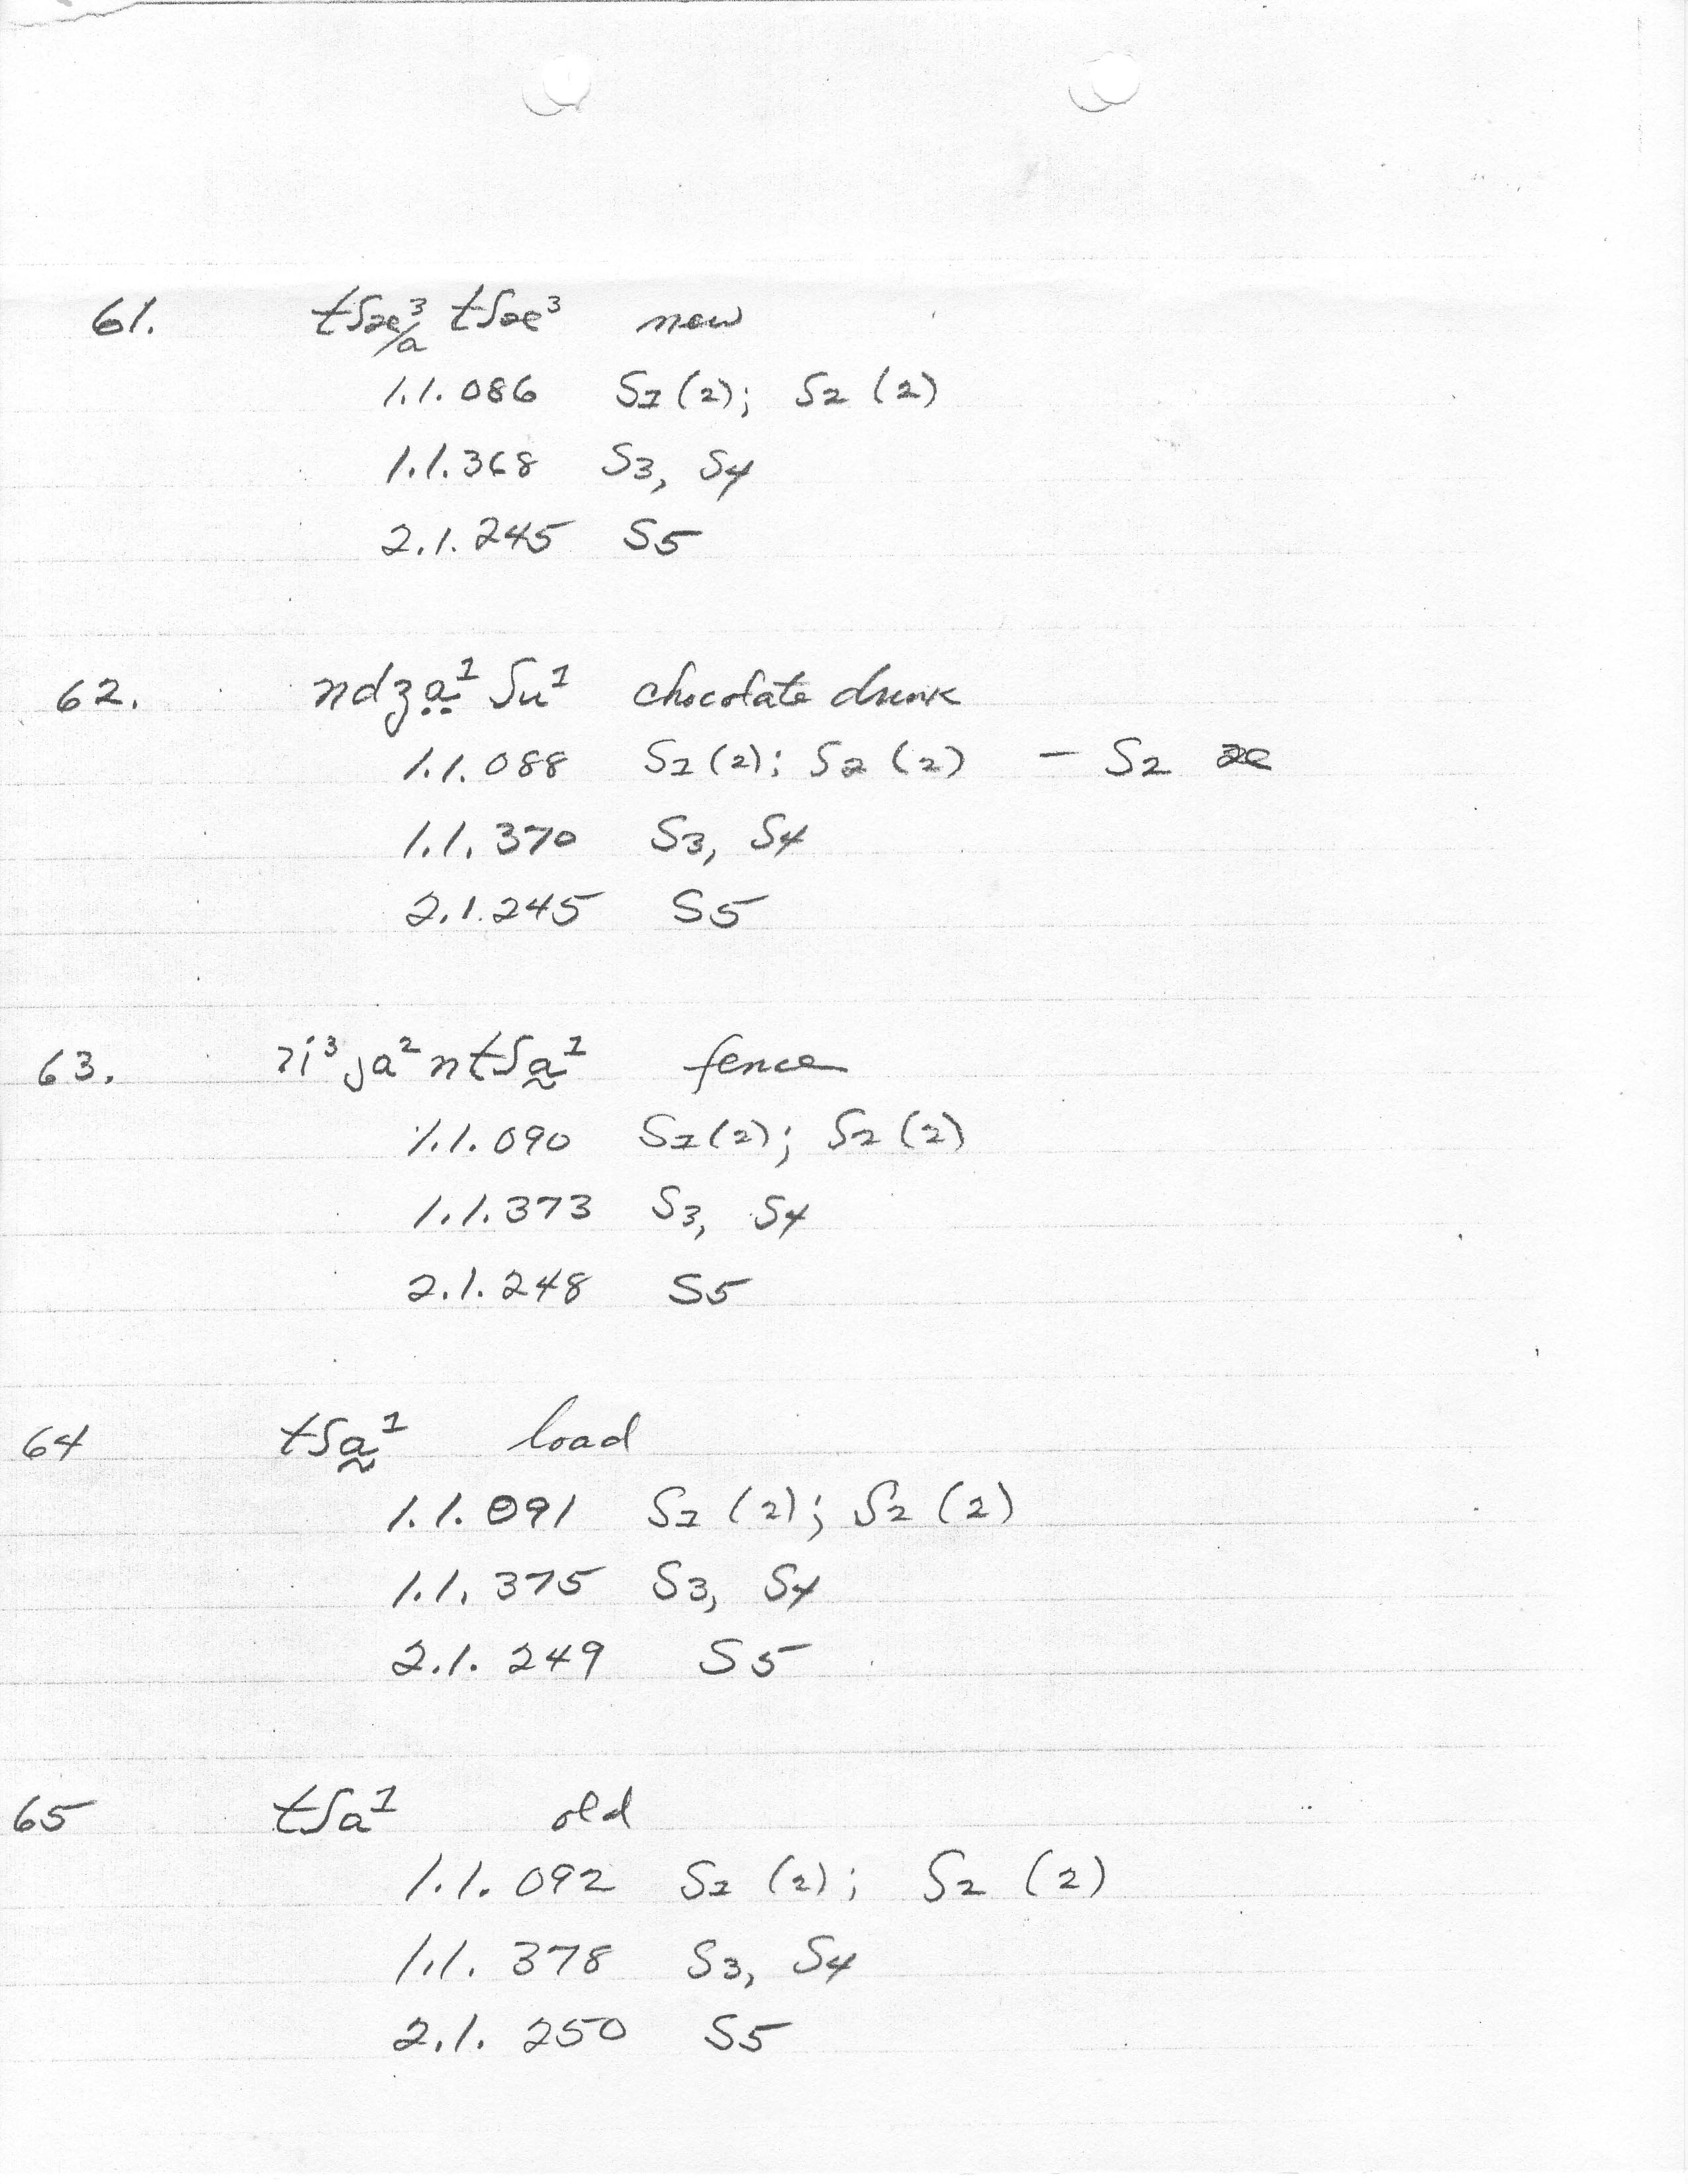 61. tʃæ³/a tʃæ³ new
1.1.086 S1 (2); S2 (2)
1.1.368 S3, S4
2.1.245 S5
62. ndʒa̤¹ ʃu¹ chocolate drink
1.1.088 S1 (2); S2 (2) – S2 æ
1.1.370 S3, S4
2.1.245 S5
63. ʔi³ja²ntʃa̰¹ fence
1.1.090 S1 (2); S2 (2)
1.1.373 S3, S4
2.1.248 S5
64 tʃa̰¹ load
1.1.091 S1 (2); S2 (2)
1.1.375 S3, S4
2.1.249 S5
65 tʃa¹ old
1.1.092 S1 (2); S2 (2)
1.1.378 S3, S4
2.1.250 S5